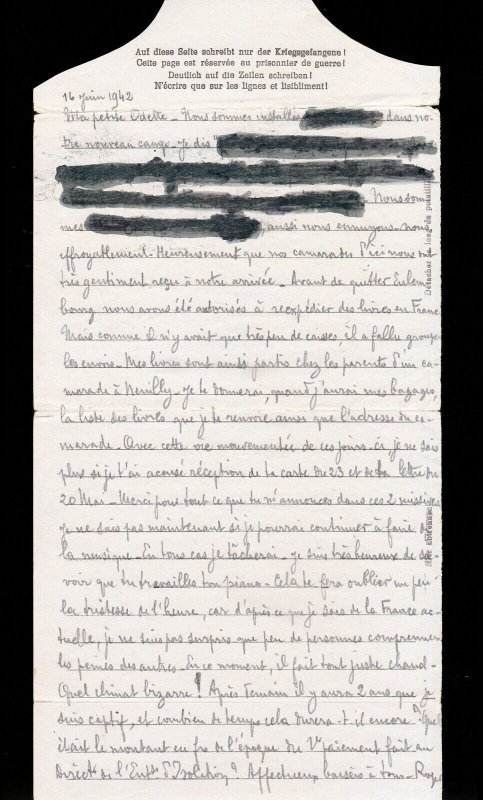 Auf diese Seite schreibt nur der Kriegsgefangene!
Cette page est réservée au prisonnier de guerre!
Deutlich auf die Zeilen schreiben!
N'écrire que sur les lignes et lisiblment!
16 Juin 1942
Ma petite Odette - Nous sommes installés dans no-
tre nouveau camp - Je dis
Nous som
mes aussi nous ennuyons-nous
effroyablement - Heureusement que nos camarades d'ici nous ont
très gentiment reçu à notre arrivée - Avant de quitter Eulen
bourg nous avons été autorisés à réexpédier des livres en France
Mais comme il n'y avait que très peu de caisses, il a fallu grouper
les envois - Mes livres sont ainsi partis chez les parents d'un ca-
marade à Neuilly - Je te donnerai, quand j'aurai mes bagages,
la liste des livres que je te renvoie ainsi que l'adresse du ca-
marade - Avec cette vie mouvementée de ces jours-ci je ne sais
plus si je t'ai accusé réception de ta carte du 23 et de ta lettre du
20 Mai - Merci pour tout ce que tu m'annonces dans ces 2 missives
Je ne sais pas maintenant si je pourrai continuer à faire de
la musique - En tous cas je tâcherai - Je suis très heureux de sa-
voir que tu travailles ton piano - Cela te fera oublier un peu
la tristesse de l'heure, car d'après ce que je sais de la France ac-
tuelle, je ne suis pas surpris que peu de personnes comprennent
les peines des autres - En ce moment, il fait tout juste chaud -
Quel climat bizarre! Après demain il y aura 2 ans que je
suis captif, et combien de temps cela durera-t-il encore? Quel
était le montant en frs de l'époque du Vt paiement fait au
Direct. de l'Entr. d'Isolation? Affectueux baisers à vous - Roger
Détacher le long du pointillé